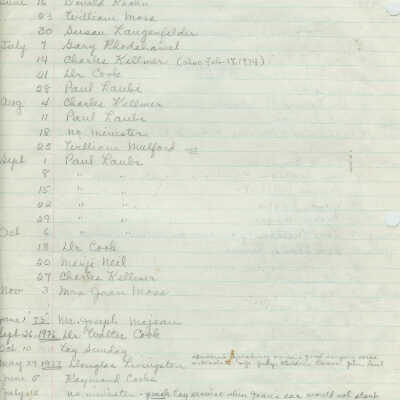 June 16 Donald Kaahn
23 William Moss
30 Susan Langenfelder
July 7 Gary Rhodenanel
14 Charles Kellmer (also Feb-17,1974)
21 Dr Cook
28 Paul Laube
Aug 4 Charles Kellmer
11 Paul Laube
18 no minister
25 William Mulford
Sept 1 Paul Laube
8 " "
15
22 " "
29 " "
Oct 6 " "
13 Dr Cook
20 Marje Neil
27 Charles Kellmer
Nov 3 Mrs Joan Moss
June 1 Mr. Joseph
Sept 26, 1976 Dr Walter Cook
Oct 10 Lay Sunday
May 29 1977 Douglas Livingston
June 5 Raymond Cooke
no minister - lay service when car would not start